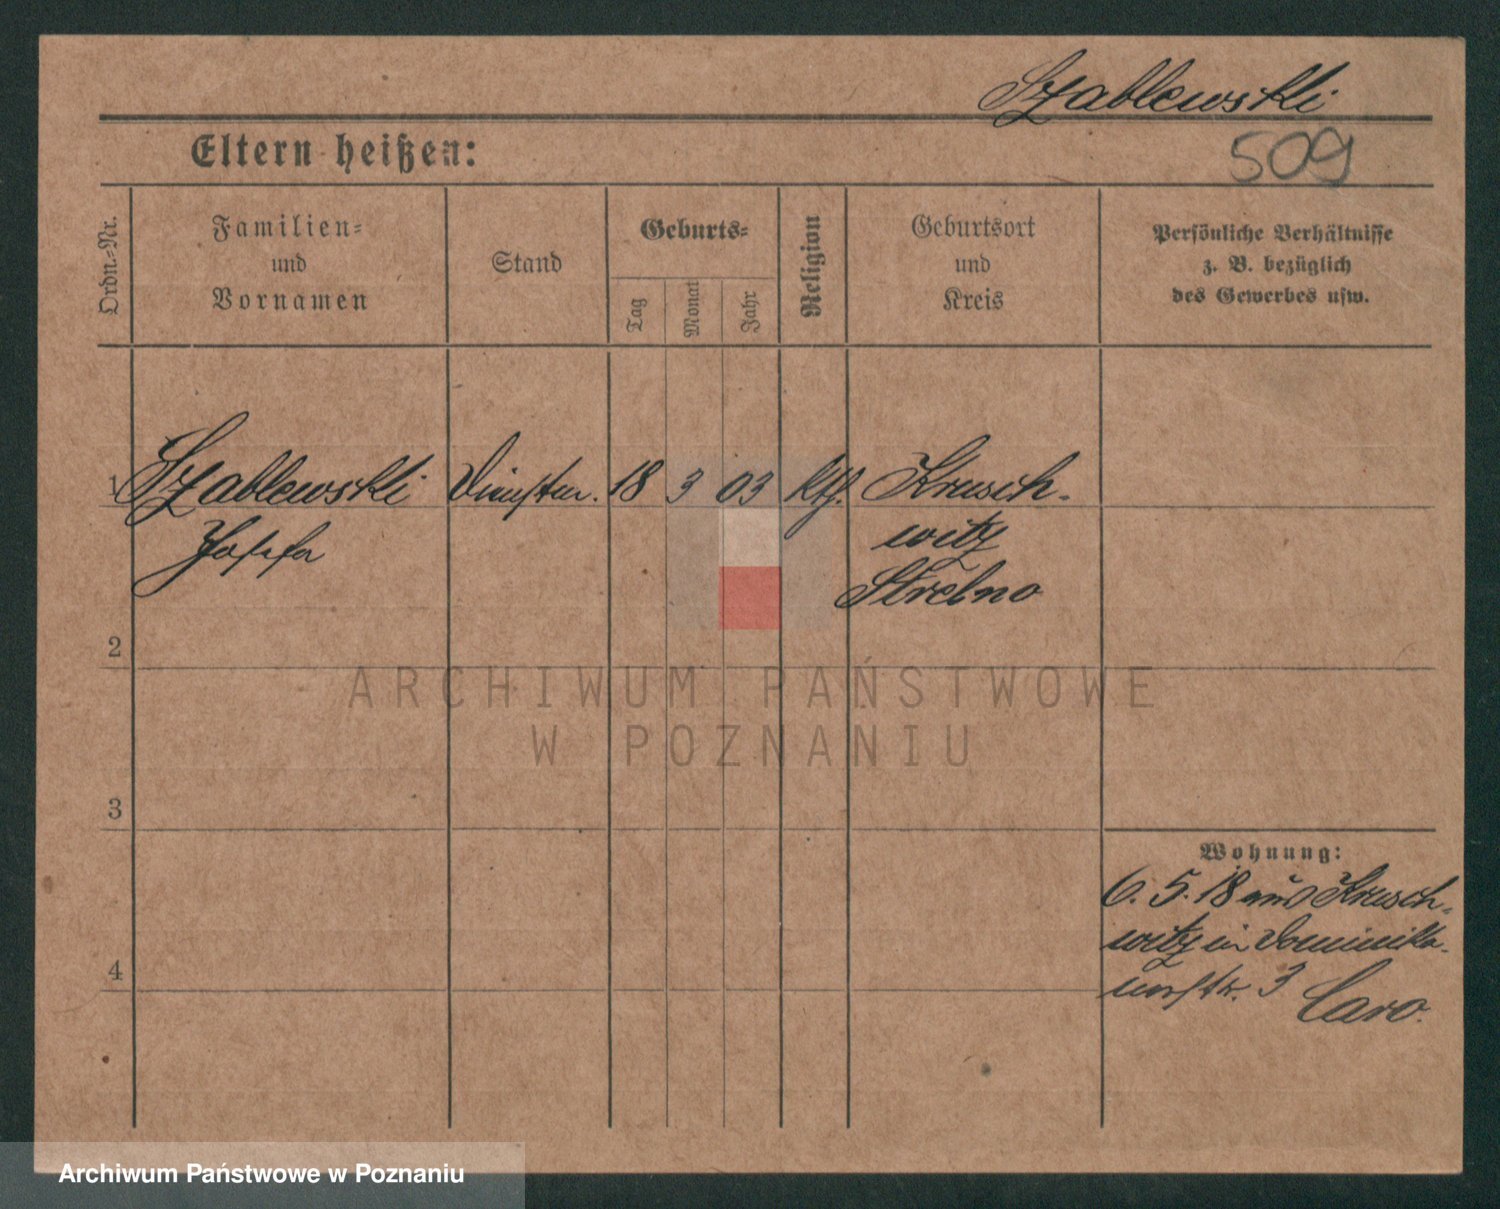 Szablewski
Eltern heißen:
509
Ordn.-Nr.
Familien-
und
Vornamen
Stand
Geburts-
Tag
Monat
Jahr
Religion
Geburtsort
und
Kreis
Persönliche Verhältnisse
z. B. bezüglich
des Gewerbes usw.
1
Szablewski 18 3 03 kth. Krusch-
witz
Strelno
2
ARCHIWUM PAŃSTWOWE
W POZNANIU
3
Wohnung:
6. 5. 18 aus Krusch-
witz in Dominika-
nerstr. 3
Caro.
4
Archiwum Państwowe w Poznaniu